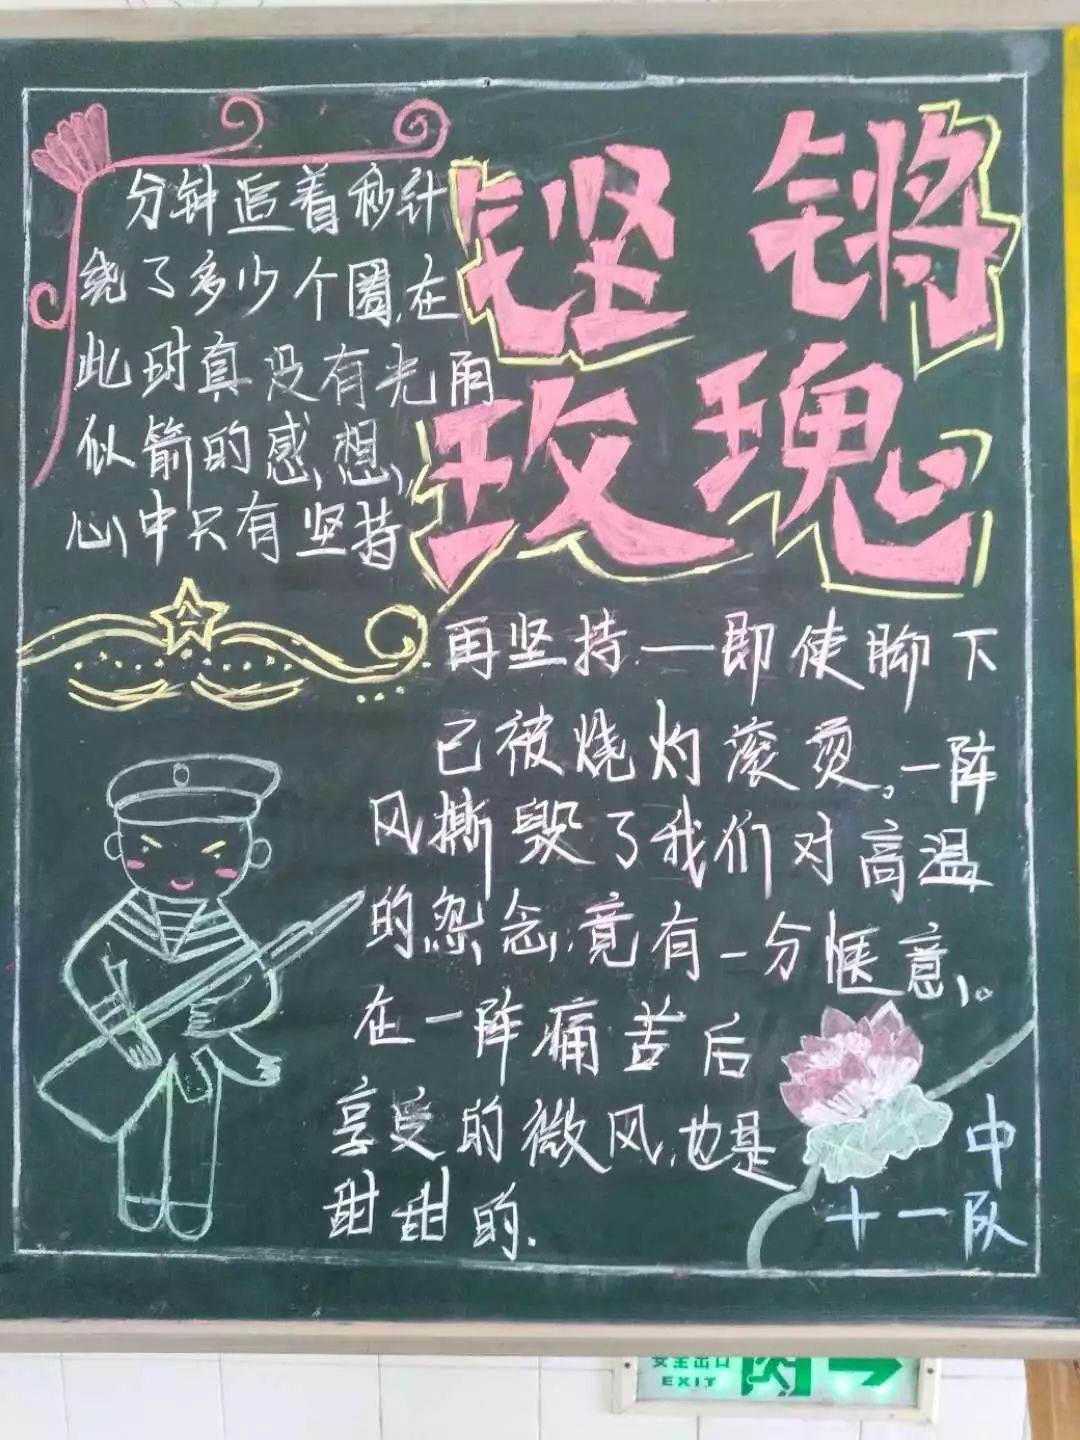 铿锵
玫瑰
分钟追着秒针
绕了多少个圈,在
此时真没有光雨
似箭的感想,
心中只有坚持
再坚持——即使脚下
已被烧灼滚烫。一阵
风撕毁了我们对高温
的怨念,竟有一分惬意。
在一阵痛苦后
享受的微风,也是
甜甜的.
中
十一队
安全出口
EXIT